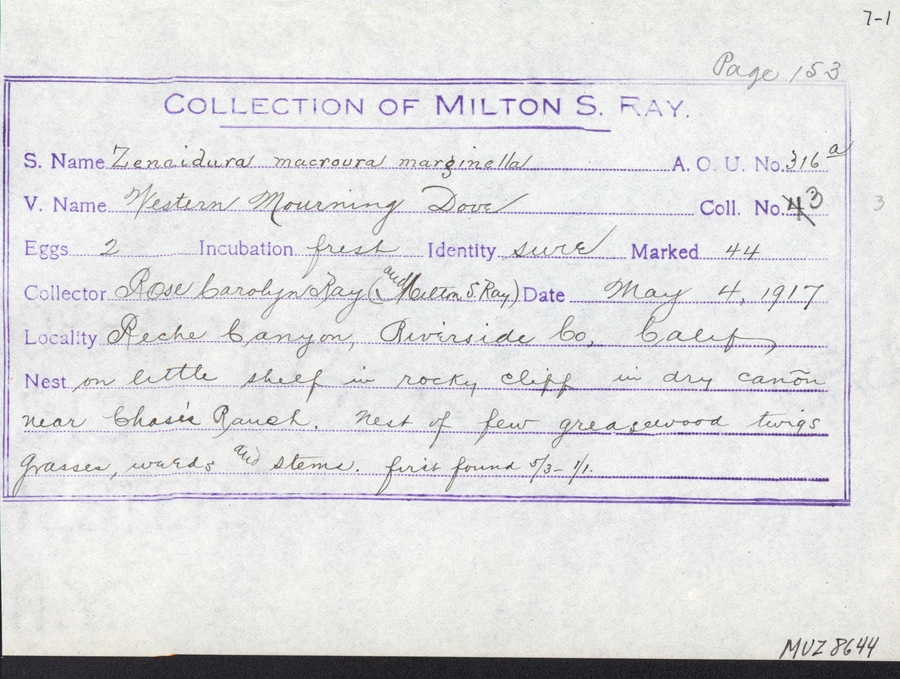 7-1
Page 153
COLLECTION OF MILTON S. RAY.
S. Name Zenaidura macroura marginella A. O. U. No. 316a
V. Name Western Mourning Dove Coll. No. 3
3
Eggs 2 Incubation fresh Identity sure Marked 44
Collector Rose Carolyn Ray (and Milton S. Ray) Date May 4, 1917
Locality Reche Canyon, Riverside Co, Calif,
Nest on little shelf in rocky cliff in dry cañon
near Chase's Ranch. Nest of few greasewood twigs
grasses, weeds and stems. first found 5/3 - 1/1.
MVZ 8644